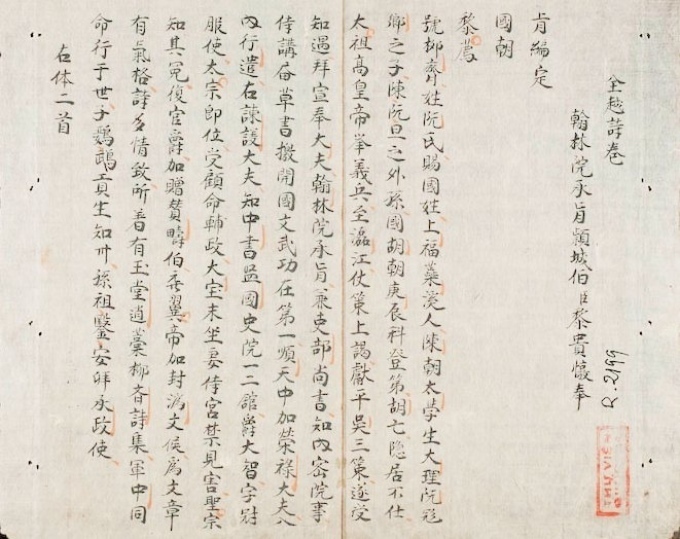 全越詩卷
翰林院承旨頴城伯臣黎貴惇奉
肯編定
國朝
黎廌
號抑齋姓阮氏賜國姓上福蘂溪人陳朝太學生大理阮飛
卿之子陳阮旦之外孫國胡朝庚辰科登第胡亡隐居不仕
太祖高皇帝挙義兵全瀘江仗策上謁獻平吳三策遂受
知遇拜宣奉大夫翰林院承旨兼吏部尚書知內密院事
侍講居草書撒開國文武功臣第一順天中加榮禄大夫入
內行遣右諫議大夫知中書監國史院一二館爵大智字尉
服使太宗即位受顧命輔政大宝末坐妾侍宮禁見害聖宗
知其冤復官爵加贈賛疇伯香翼帝加封濟文侯爲文章
有氣格詩多情致所著有玉堂逍藁抑齋詩集軍中同
命行于世子鸚鵡員生知卅孫祖鑒安拜承政使
右体二首
R.2199
THU VIEN